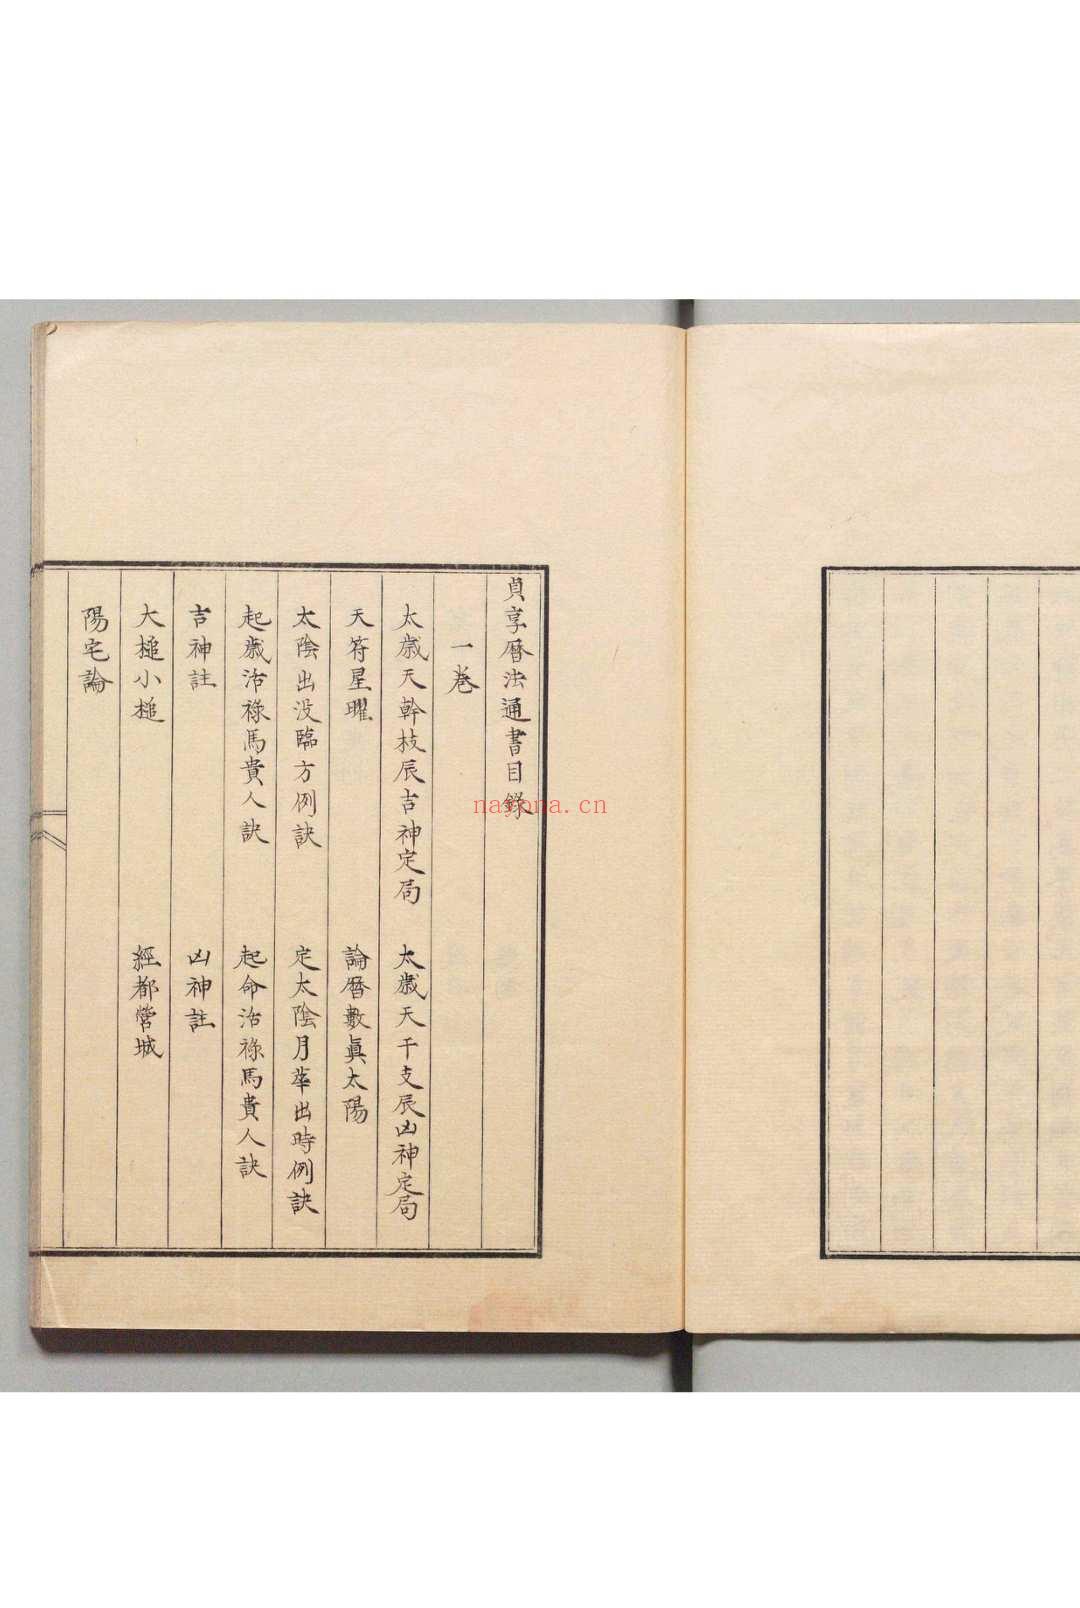 貞享曆法通書目錄
一卷
太歲天幹枝辰吉神定局　太歲天干支辰凶神定局
天符星曜　論曆數眞太陽
太陰出没臨方例訣　定太陰月華出時例訣
起歲治祿馬貴人訣　起命治祿馬貴人訣
吉神註　凶神註
大槌小槌　經都營城
陽宅論
nayona.cn